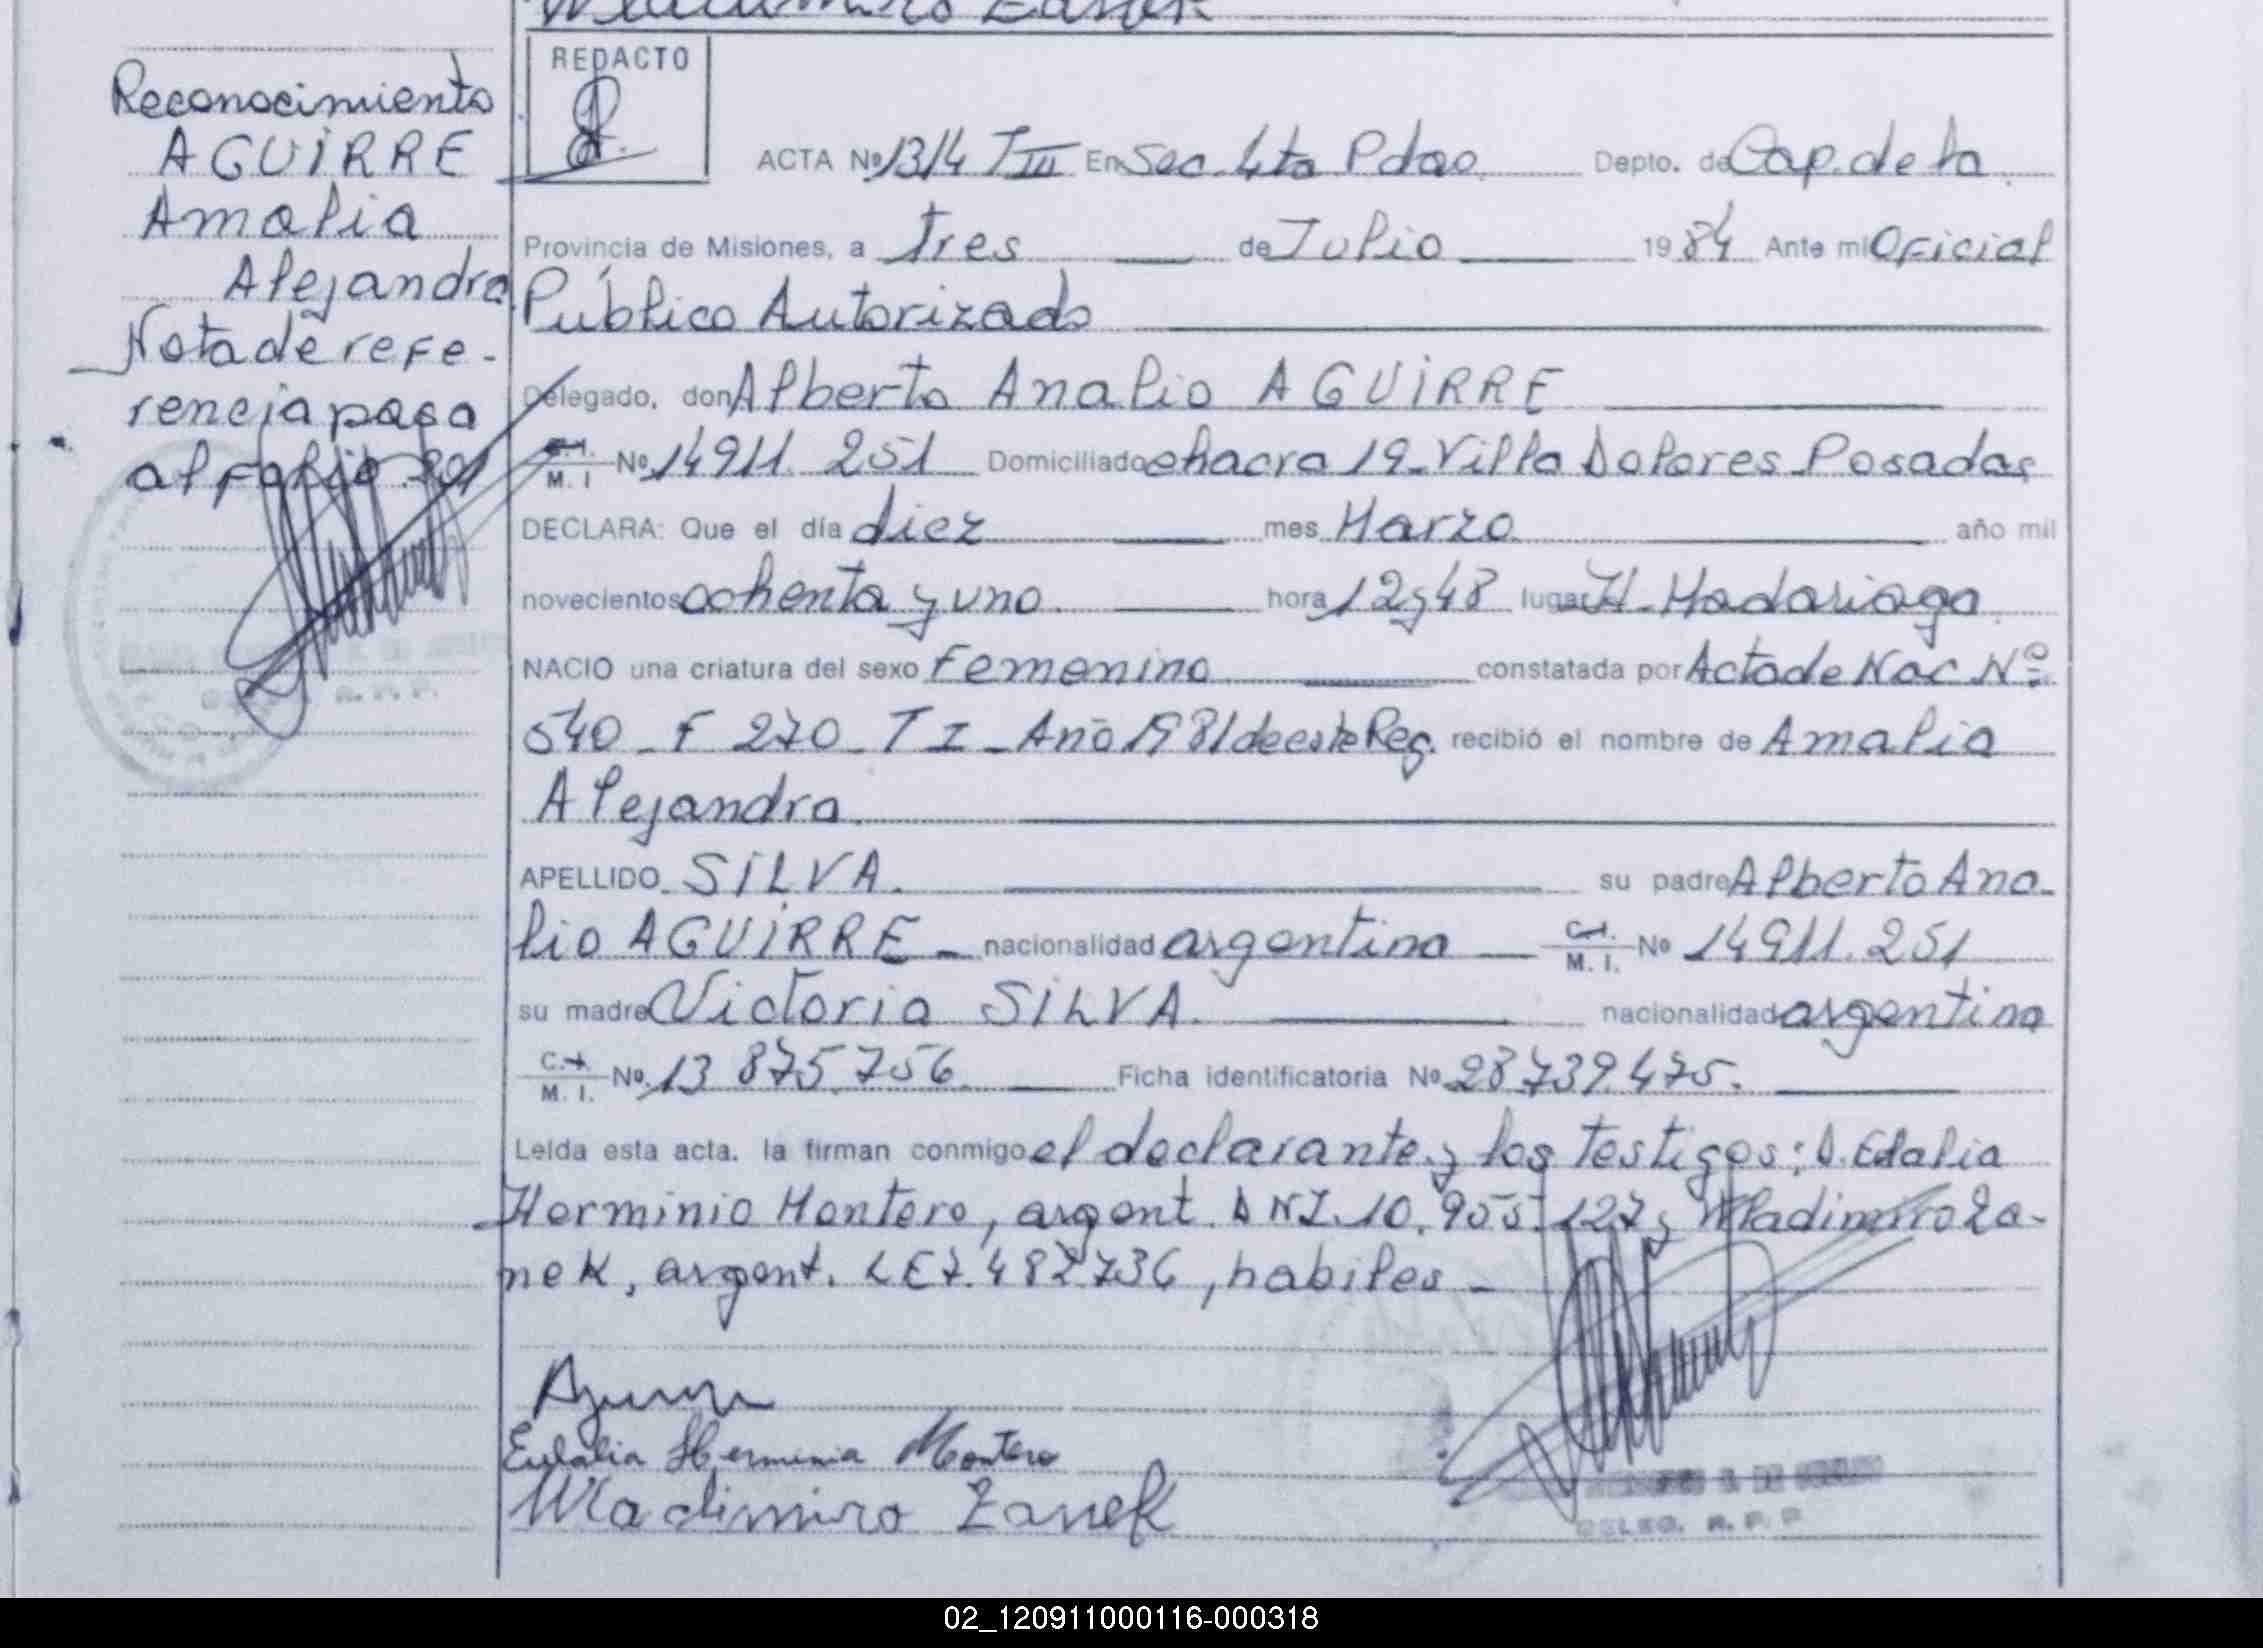 Wladimiro Zanek
REDACTO
Reconocimiento
AGUIRRE
Amalia
Alejandra
Nota de refe-
rencia pasa
al folio
ACTA Nº 1314 T III En Sec. 4ta Pdas. Depto. de Cap. de la
Provincia de Misiones, a tres de Julio 1984 Ante mi Oficial
Público Autorizado
Delegado, don Alberto Analio AGUIRRE
C.I. M. I Nº 14911.251 Domiciliado chacra 19-Villa Dolores-Posadas
DECLARA: Que el día diez mes Marzo año mil
novecientos ochenta y uno hora 12y48 lugar H. Madariaga
NACIO una criatura del sexo Femenino constatada por Acta de Nac Nº
540-F 270-T I-Año 1981 de este Reg. recibió el nombre de Amalia
Alejandra.
APELLIDO SILVA. su padre Alberto Ana-
lio AGUIRRE- nacionalidad argentina C.I. M. I. Nº 14911.251
su madre Victoria SILVA. nacionalidad argentina
C.I. M. I. Nº 13.875.756. Ficha identificatoria Nº 28739.475.
Leída esta acta. la firman conmigo el declarante y los testigos: D. Edalia
Herminio Montero, argent. DNI.10.955.127 y Wladimiro Za-
nek, argent. LE7.482736, habiles-
Eulalia Herminia Montero
Wladimiro Zanek
DELEG. R. P. P.
02_120911000116-000318